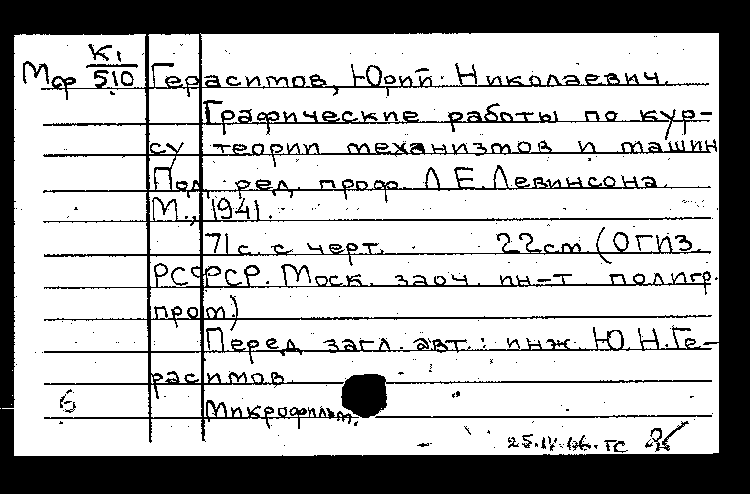 К1
Мф 510 Герасимов, Юрий Николаевич.
Графические работы по кур-
су теории механизмов и машин
Под ред. проф. Л.Е. Левинсона.
М., 1941.
71 с. с черт. 22см (ОГИЗ.
РСФСР. Моск. заоч. ин-т полигр.
пром.)
Перед загл. авт.: инж. Ю.Н. Ге-
расимов.
6 Микрофильм.
25.IV.66. ГС